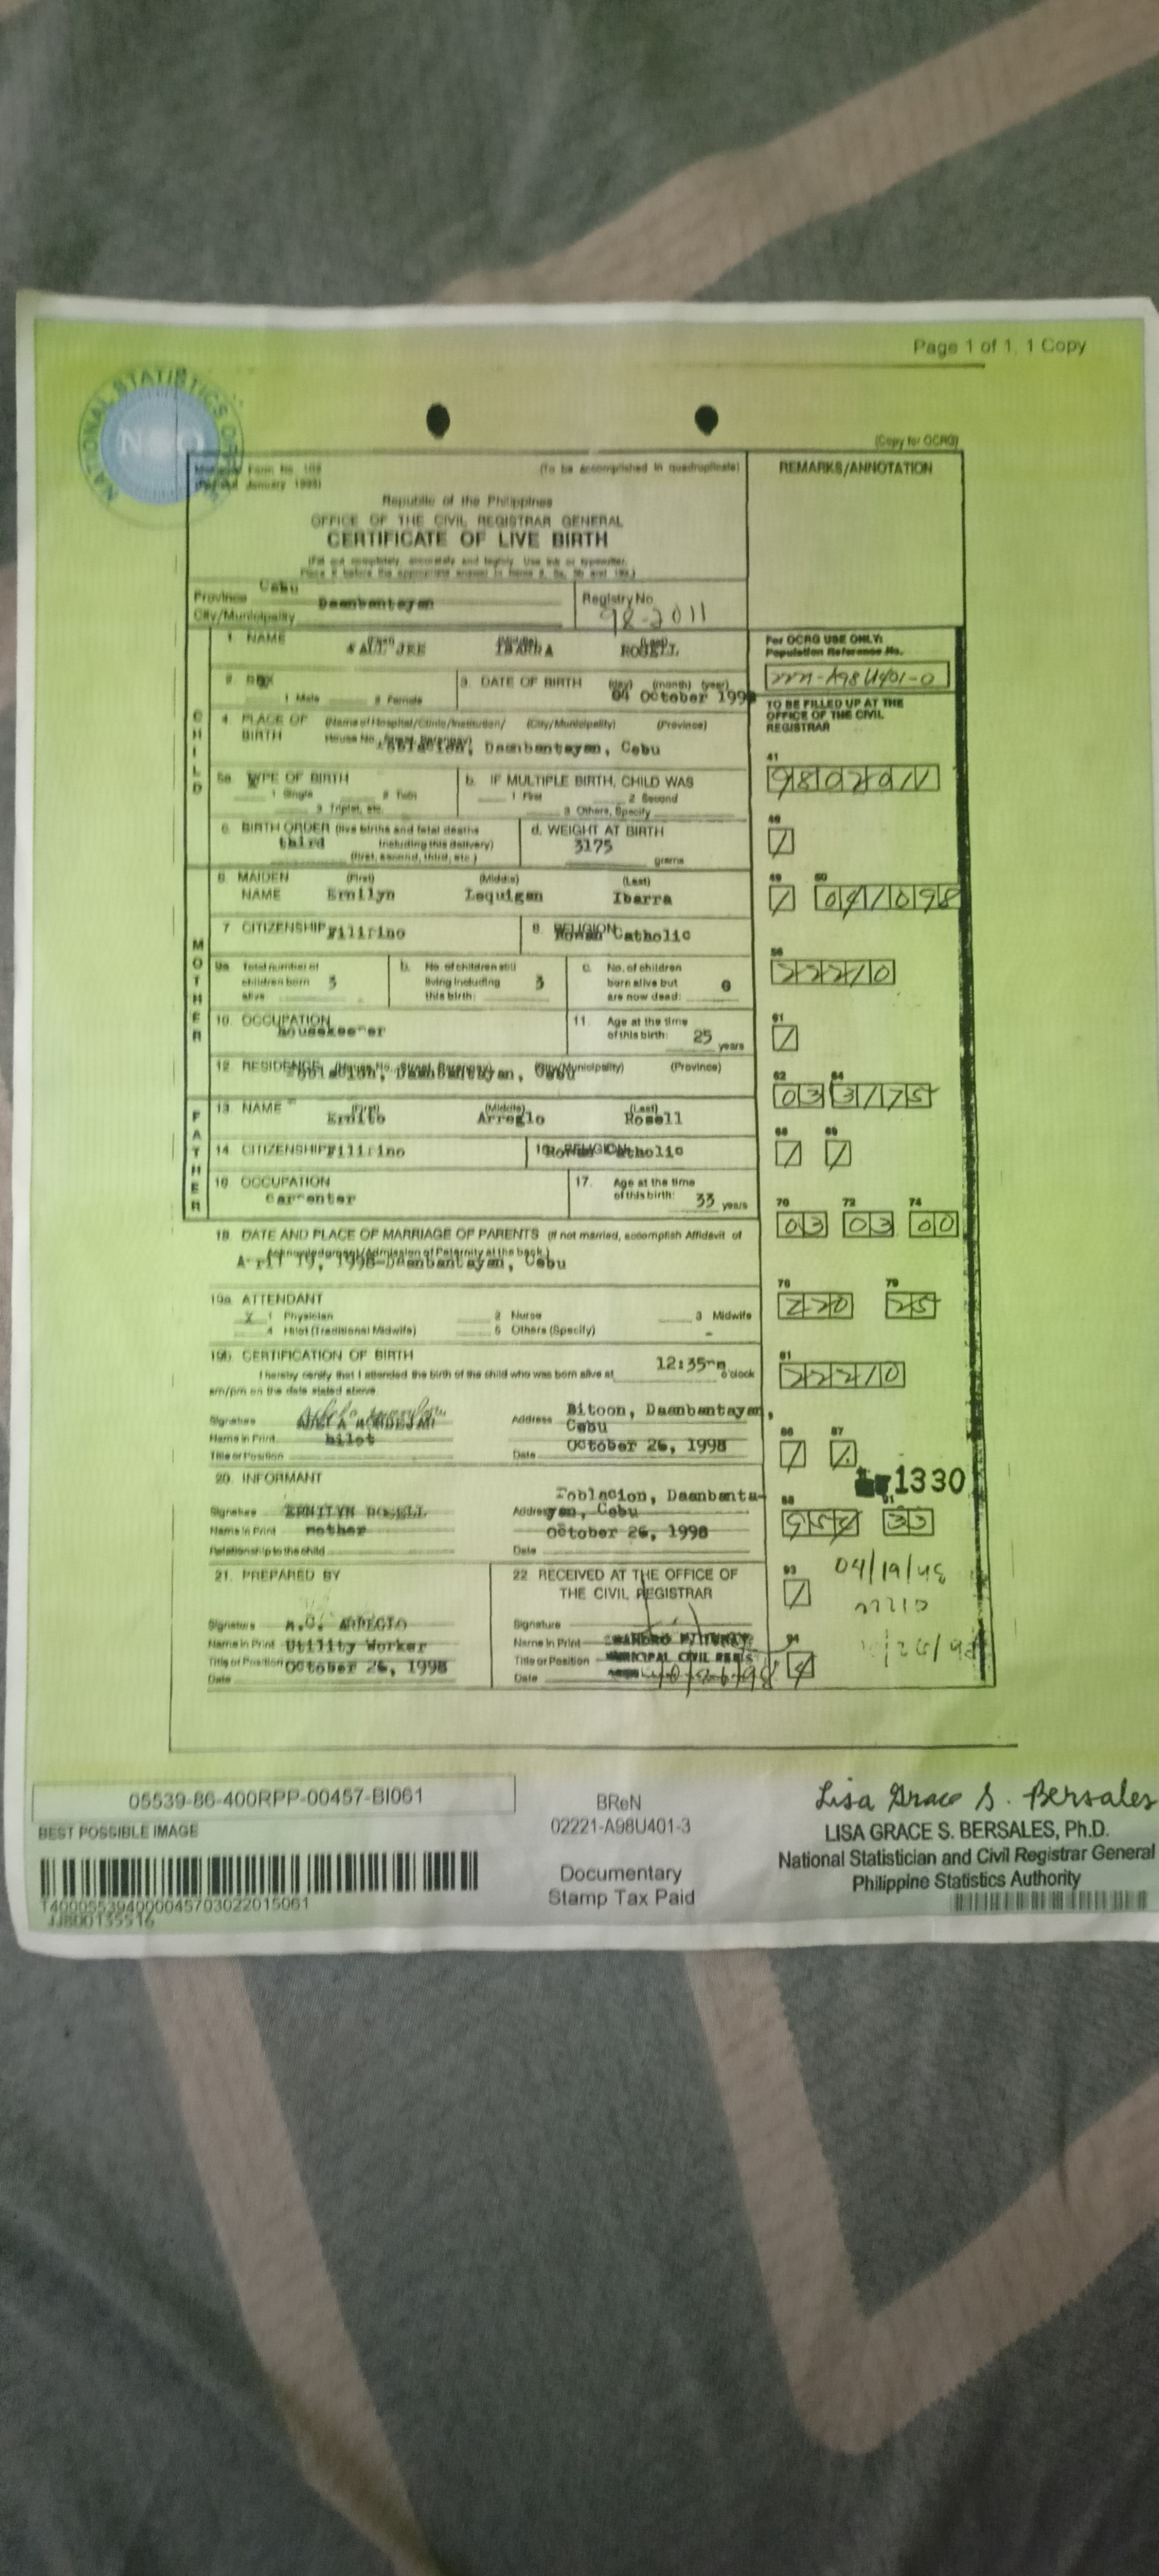 Page 1 of 1, 1 Copy
NATIONAL STATISTICS
NSO
(Copy for OCRG)
Form No. 102
January 1993)
(To be accomplished in quadruplicate)
REMARKS/ANNOTATION
Republic of the Philippines
OFFICE OF THE CIVIL REGISTRAR GENERAL
CERTIFICATE OF LIVE BIRTH
(Fill out completely, accurately and legibly. Use ink or typewriter.
Place X before the appropriate answer in Items 2, 5a, 5b and 19a.)
Province Cebu
City/Municipality Daanbantayan
Registry No.
98-2011
For OCRG USE ONLY:
Population Reference No.
CHILD
1. NAME (First) (Middle) (Last)
JEE IBARRA ROSELL
2. SEX
1 Male 2 Female
3. DATE OF BIRTH (day) (month) (year)
04 October 199
TO BE FILLED UP AT THE
OFFICE OF THE CIVIL
REGISTRAR
4. PLACE OF BIRTH (Name of Hospital/Clinic/Institution/ (City/Municipality) (Province)
House No., Street, Barangay)
Daanbantayan, Cebu
5a. TYPE OF BIRTH
1 Single 2 Twin
3 Triplet, etc.
b. IF MULTIPLE BIRTH, CHILD WAS
1 First 2 Second
3 Others, Specify
c. BIRTH ORDER (live births and fetal deaths
including this delivery)
third
(first, second, third, etc.)
d. WEIGHT AT BIRTH
3175
grams
MOTHER
6. MAIDEN NAME (First) (Middle) (Last)
Ernilyn Lequigan Ibarra
7. CITIZENSHIP
8. RELIGION
Catholic
9a. Total number of
children born
alive: 3
b. No. of children still
living including
this birth: 3
c. No. of children
born alive but
are now dead: 0
10. OCCUPATION
11. Age at the time
of this birth: 25 years
12. RESIDENCE (House No., Street, Barangay) (City/Municipality) (Province)
Daanbantayan, Cebu
FATHER
13. NAME (First) (Middle) (Last)
Arreglo Rosell
14. CITIZENSHIP
15. RELIGION
16. OCCUPATION
17. Age at the time
of this birth: 33 years
18. DATE AND PLACE OF MARRIAGE OF PARENTS (If not married, accomplish Affidavit of
Acknowledgment/Admission of Paternity at the back.)
19, 1998-Daanbantayan, Cebu
19a. ATTENDANT
X 1 Physician 2 Nurse 3 Midwife
4 Hilot (Traditional Midwife) 5 Others (Specify)
19b. CERTIFICATION OF BIRTH
I hereby certify that I attended the birth of the child who was born alive at 12:35 o'clock
am/pm on the date stated above.
Signature
Name in Print
hilot
Title or Position
Address Bitoon, Daanbantayan,
Cebu
Date October 26, 1998
20. INFORMANT
Signature
Name in Print ROSELL
mother
Relationship to the child
Address Daanbanta-
yan, Cebu
October 26, 1998
Date
1330
21. PREPARED BY
Signature
Name in Print Utility Worker
Title or Position October 26, 1998
Date
22 RECEIVED AT THE OFFICE OF
THE CIVIL REGISTRAR
Signature
Name in Print
Title or Position
Date
41
48
49 50
041098
56
22210
61
62 64
03 3175
68 69
70 72 74
03 03 00
76 79
220 25
81
22210
86 87
88 91
33
93
94
05539-86-400RPP-00457-BI061
BEST POSSIBLE IMAGE
BReN
02221-A98U401-3
Documentary
Stamp Tax Paid
Lisa Grace S. Bersales
LISA GRACE S. BERSALES, Ph.D.
National Statistician and Civil Registrar General
Philippine Statistics Authority